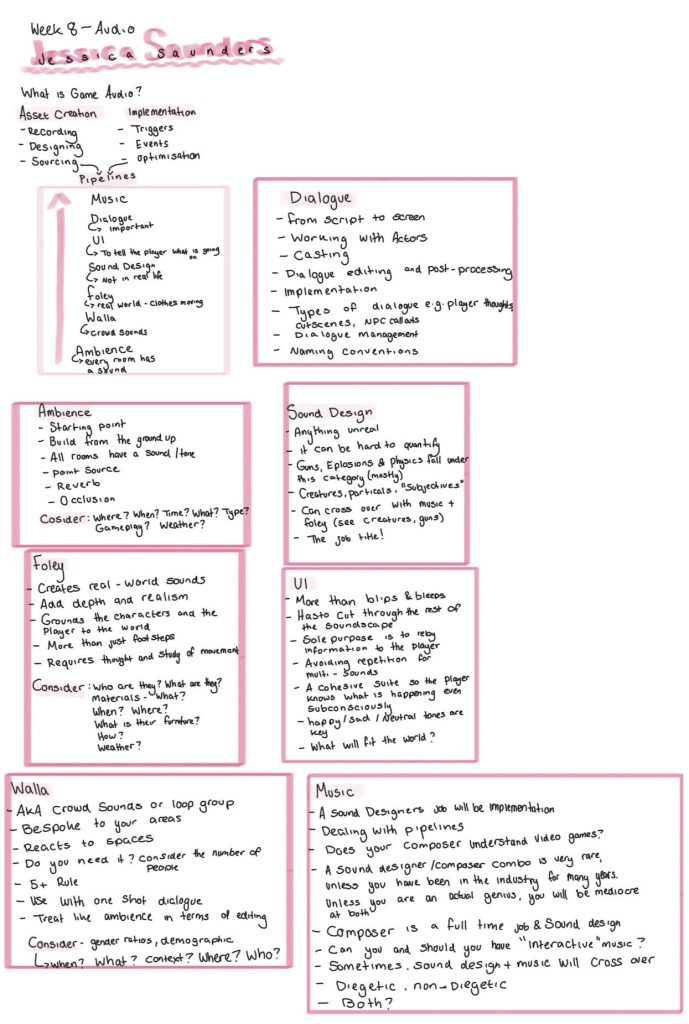 Week 8 - Audio
Jessica Saunders
What is Game Audio?
Asset Creation
- Recording
- Designing
- Sourcing
Implementation
- Triggers
- Events
- Optimisation
Pipelines
Music
Dialogue
↳ important
UI
↳ To tell the player what is going on
Sound Design
↳ Not in real life
Foley
↳ real world - clothes moving
Walla
↳ crowd sounds
Ambience
↳ every room has
a sound
Dialogue
- From script to screen
- Working with Actors
- Casting
- Dialogue editing and post-processing
- Implementation
- Types of dialogue e.g. player thoughts,
cutscenes, NPC callouts
- Dialogue management
- Naming conventions
Ambience
- Starting point
- Build from the ground up
- All rooms have a sound/tone
- Point Source
- Reverb
- Occlusion
Cosider: Where? When? Time? What? Type?
Gameplay? Weather?
Sound Design
- Anything unreal
- it can be hard to quantify
- Guns, Eplosions & Physics fall under
this category (mostly)
- Creatures, particals, "Subjectives"
- Can cross over with music +
foley (see creatures, guns)
- The job title!
Foley
- Creates real-world sounds
- Add depth and realism
- Grounds the characters and the
Player to the world
- More than just footsteps
- Requires thought and study of movement
Consider: Who are they? What are they?
Materials - What?
When? Where?
What is their furniture?
How?
Weather?
UI
- More than blips & bleeps
- Has to cut through the rest of
the soundscape
- Sole purpose is to relay
information to the player
- Avoiding repetition for
multi-sounds
- A cohesive suite so the player
knows what is happening even
subconsciously
- happy/sad/Neutral tones are
key
- What will fit the world?
Walla
- AKA Crowd Sounds or loop group
- Bespoke to your areas
- Reacts to spaces
- Do you need it? consider the number of
people
- 5+ Rule
- Use with one shot dialogue
- Treat like ambience in terms of editing
Consider - gender ratios, demographic
↳ When? What? Context? Where? Who?
Music
- A Sound Designers job will be implementation
- Dealing with pipelines
- Does your composer understand video games?
- A sound designer/composer combo is very rare,
unless you have been in the industry for many years.
Unless you are an actual genius, you will be mediocre
at both
- Composer is a full time job & Sound design
- Can you and should you have "interactive" music?
- Sometimes. sound design + music will cross over
- Diegetic. non-Diegetic
- Both?